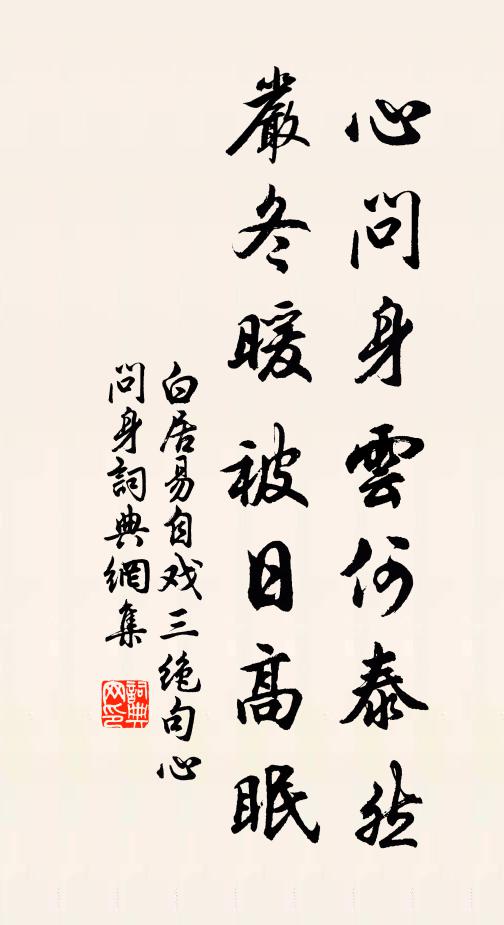 心問身雲何泰然
嚴冬暖被日高眠
白居易自戏三绝句心
問身詞典網集
詞典网印